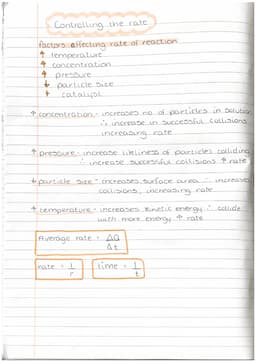 Controlling the rate
Factors affecting rate of reaction
↑ temperature
↑ concentration
↑ pressure
↓ particle size
+ catalyst
↑ concentration - increases no of particles in solution
∴ increase in successful collisions
increasing rate
↑ pressure - increase likeliness of particles colliding
∴ increase successful collisions ↑ rate
↓ particle size - increases surface area ∴ increases
collisions, increasing rate
↑ temperature - increases kinetic energy ∴ collide
with more energy ↑ rate
Average rate = ΔQ
Δt
rate = 1
r
Time = 1
t